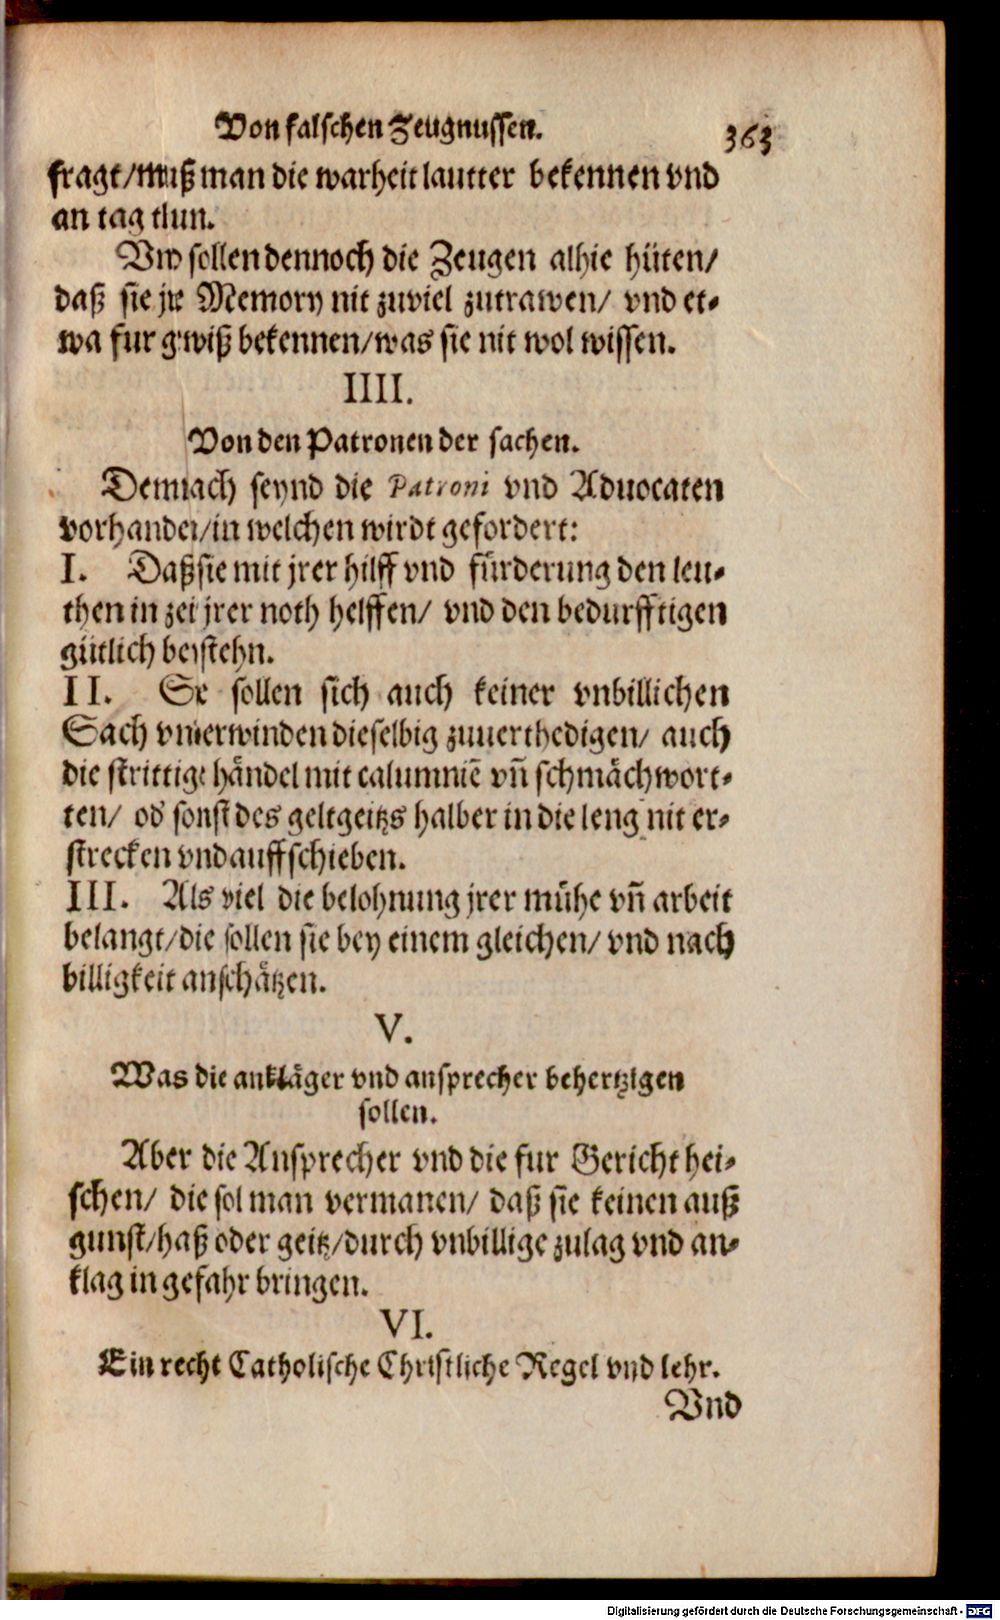 Von falschen Zeugnussen. 363
fragt/muß man die warheit lautter bekennen vnd
an tag thun.
Vnd sollen dennoch die Zeugen alhie hüten/
daß sie jre Memory nit zuviel zutrawen/ vnd et-
wa fur gwiß bekennen/was sie nit wol wissen.
IIII.
Von den Patronen der sachen.
Demnach seynd die Patroni vnd Aduocaten
vorhanden/in welchen wirdt gefordert:
I. Daß sie mit jrer hilff vnd fürderung den leu-
then in zeit jrer noth helffen/ vnd den bedurfftigen
gütlich beistehn.
II. Sie sollen sich auch keiner vnbillichen
Sach vnterwinden dieselbig zuuerthedigen/ auch
die strittige händel mit calumniē vñ schmächwort-
ten/ od sonst des geltgeitzs halber in die leng nit er-
strecken vnd auffschieben.
III. Als viel die belohnung jrer mühe vñ arbeit
belangt/die sollen sie bey einem gleichen/ vnd nach
billigkeit anschätzen.
V.
Was die ankläger vnd ansprecher behertzigen
sollen.
Aber die Ansprecher vnd die fur Gericht hei-
schen/ die sol man vermanen/ daß sie keinen auß
gunst/haß oder geitz/durch vnbillige zulag vnd an-
klag in gefahr bringen.
VI.
Ein recht Catholische Christliche Regel vnd lehr.
Vnd
Digitalisierung gefördert durch die Deutsche Forschungsgemeinschaft - DFG